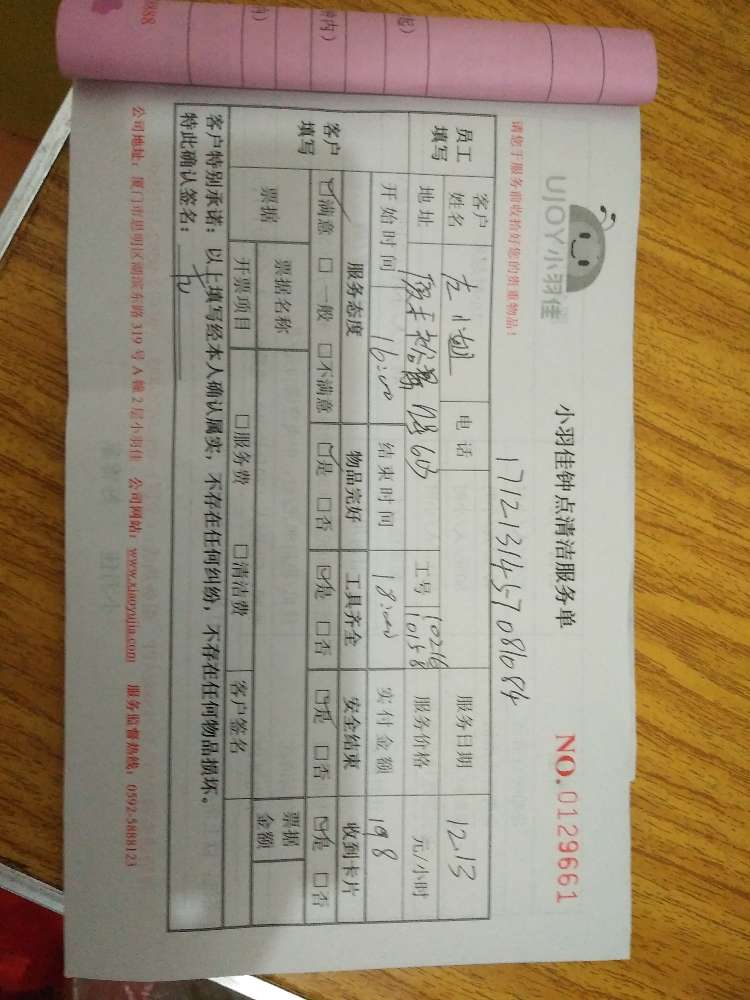 UJOY小羽佳
小羽佳钟点清洁服务单
NO.0129661
请您于服务前收拾好您的贵重物品！
1712131457081084
员工填写 客户姓名 左小姐 电话 服务日期 12.13
地址 608 工号 10216 10158 服务价格 元/小时
开始时间 16:00 结束时间 18:00 实付金额 198
客户填写 服务态度 物品完好 工具齐全 安全结束 收到卡片
☑满意 □一般 □不满意 ☑是 □否 ☑是 □否 ☑是 □否 ☑是 □否
票据 票据名称 票据金额
开票项目 □服务费 □清洁费 客户签名
客户特别承诺：以上填写经本人确认属实，不存在任何纠纷，不存在任何物品损坏。
特此确认签名：
公司地址：厦门市思明区湖滨东路 319 号 A 幢 2 层小羽佳 公司网站：www.xiaoyujia.com 服务监督热线：0592-5888123